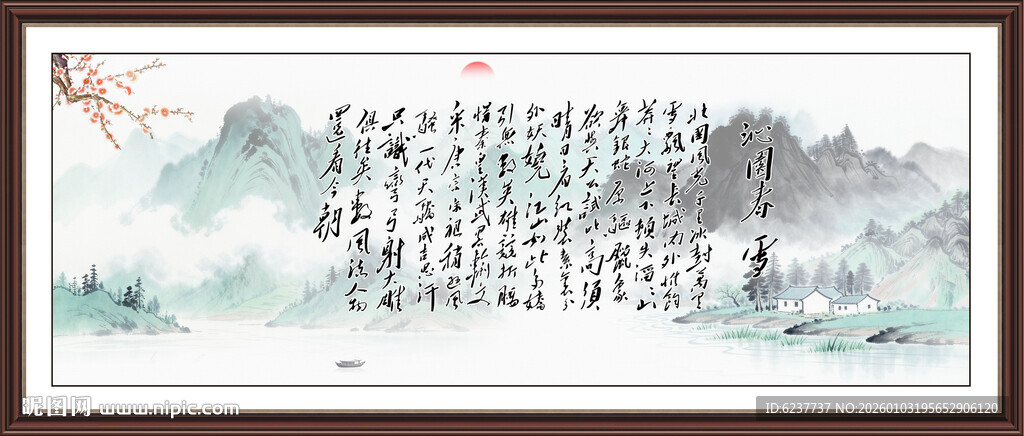 沁園春 雪
北國風光千里冰封萬里
雪飄望長城内外惟餘
莽々大河上下頓失滔々山
舞銀蛇原驅臘象
欲與天公試比高須
晴日看紅裝素裹分
外妖嬈江山如此多嬌
引無數英雄競折腰
惜秦皇漢武略輸文
采唐宗宋祖稍遜風
騷一代天驕成吉思汗
只識彎弓射大雕
俱往矣數風流人物
還看今朝
昵图网 www.nipic.com
ID:6237737 NO:20260103195652906120